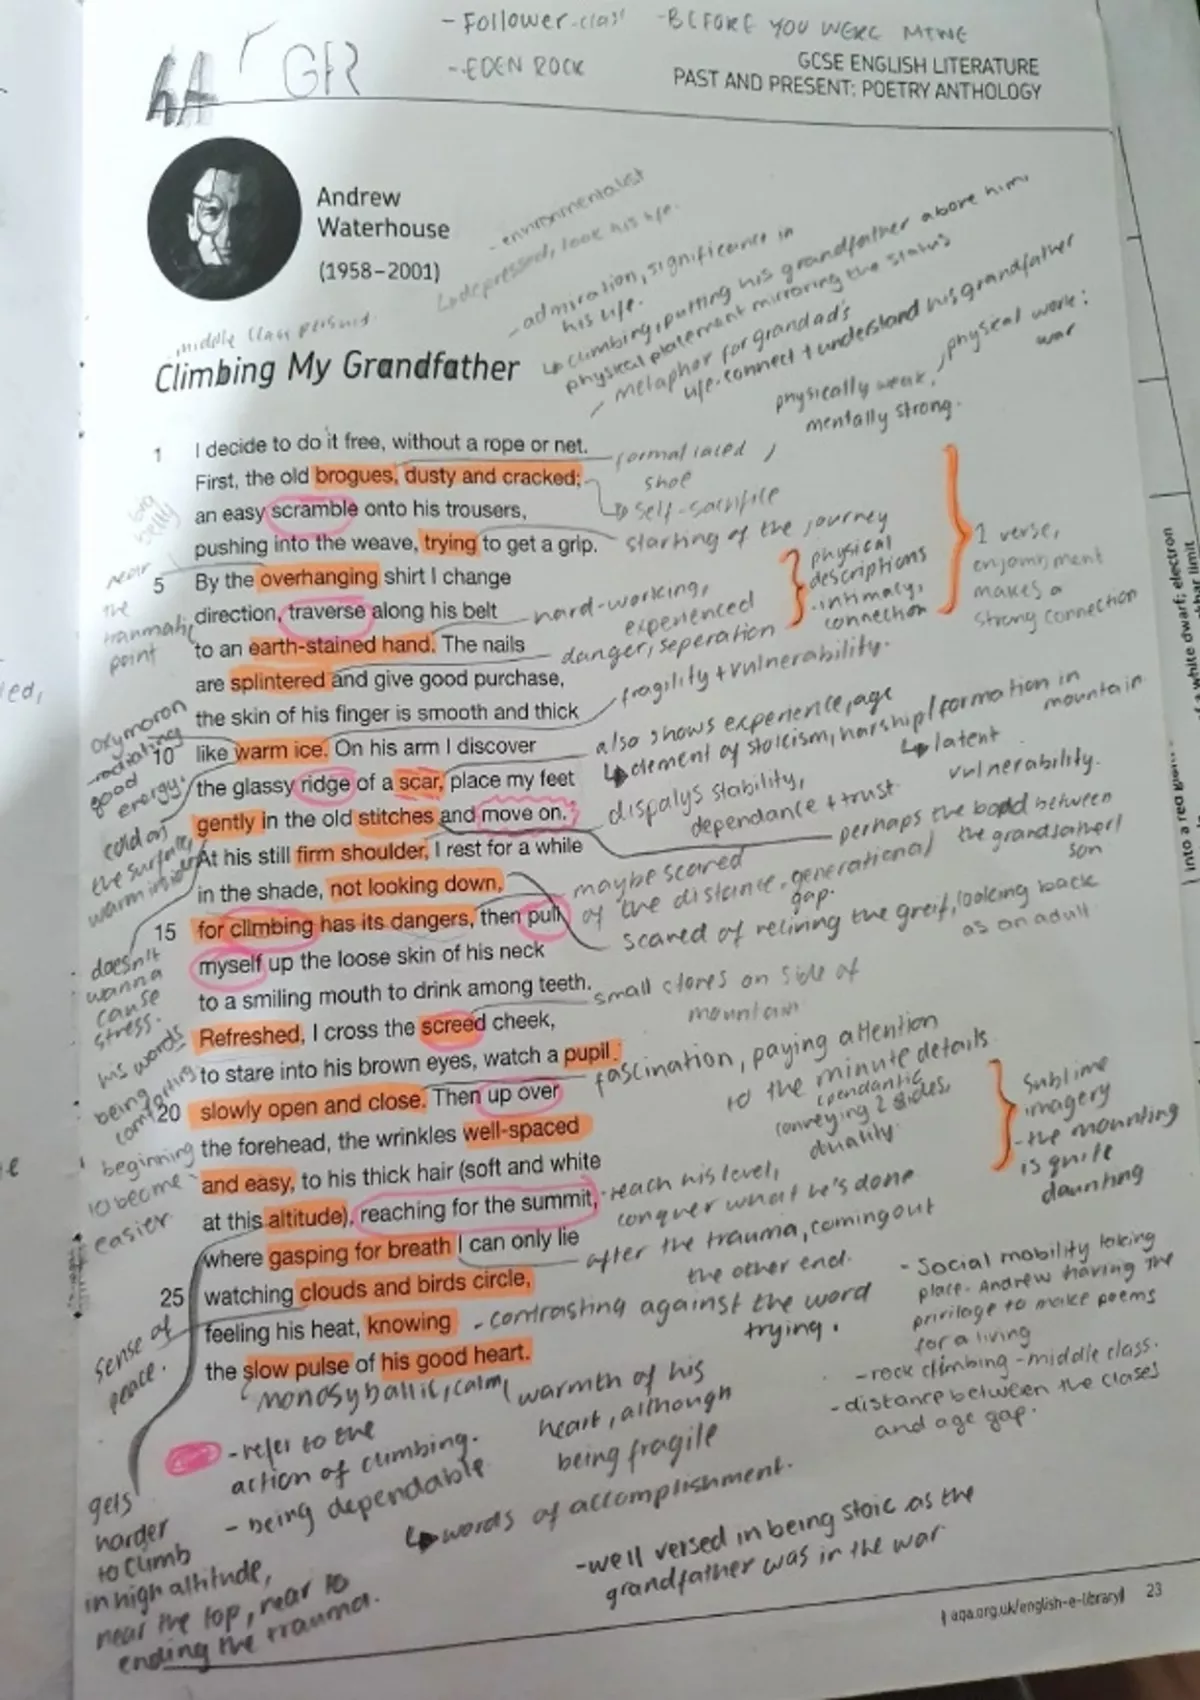 - Follower - class
- BEFORE YOU WERE MINE
- EDEN ROCK
GCSE ENGLISH LITERATURE
PAST AND PRESENT: POETRY ANTHOLOGY
Andrew
Waterhouse
(1958–2001)
- environmentalist
↳ depressed, took his life.
- admiration, significance in
his life.
↳ climbing, putting his grandfather above him,
physical placement mirroring the status
- metaphor for grandad's
life. connect + understand his grandfather
middle class persuit.
Climbing My Grandfather
physical work:
war
physically weak,
mentally strong.
1 I decide to do it free, without a rope or net.
First, the old brogues, dusty and cracked;
an easy scramble onto his trousers,
pushing into the weave, trying to get a grip.
5 By the overhanging shirt I change
direction, traverse along his belt
to an earth-stained hand. The nails
are splintered and give good purchase,
the skin of his finger is smooth and thick
10 like warm ice. On his arm I discover
the glassy ridge of a scar, place my feet
gently in the old stitches and move on.
At his still firm shoulder, I rest for a while
in the shade, not looking down,
15 for climbing has its dangers, then pull
myself up the loose skin of his neck
to a smiling mouth to drink among teeth.
Refreshed, I cross the screed cheek,
to stare into his brown eyes, watch a pupil
20 slowly open and close. Then up over
the forehead, the wrinkles well-spaced
and easy, to his thick hair (soft and white
at this altitude), reaching for the summit,
where gasping for breath I can only lie
25 watching clouds and birds circle,
feeling his heat, knowing
the slow pulse of his good heart.
formal laced
shoe
↳ self-sacrifice
starting of the journey
physical
descriptions
- intimacy,
connection
1 verse,
enjambment
makes a
strong connection
hard-working,
experienced
danger, seperation
fragility + vulnerability.
also shows experience, age
↳ element of stoicism, harship / formation in
mountain
↳ latent
vulnerability.
dispalys stability,
dependance + trust.
perhaps the bond between
the grandfather /
son
maybe scared
of the distance, generational
gap.
scared of reliving the greif, looking back
as an adult
small stones on side of
mountain
fascination, paying attention
to the minute details
pendantic
conveying 2 sides,
duality.
sublime
imagery
- the mounting
is quite
daunting
reach his level,
conquer what he's done
after the trauma, coming out
the other end.
- contrasting against the word
trying.
- Social mobility taking
place. Andrew having the
privilage to make poems
for a living
- rock climbing - middle class.
- distance between the clases
and age gap.
big
belly
near
the
point
oxymoron
- radiating
good
energy.
cold on
the surface,
warm inside
doesn't
wanna
cause
stress.
his words
being
comforting
beginning
to become
easier.
sense of
peace.
monosyballic, calm,
warmth of his
heart, although
being fragile
- refer to the
action of climbing.
- being dependable
↳ words of accomplishment.
gets
harder
to climb
in high altitude,
near the top, near to
ending the trauma.
- well versed in being stoic as the
grandfather was in the war
aqa.org.uk/english-e-library
23